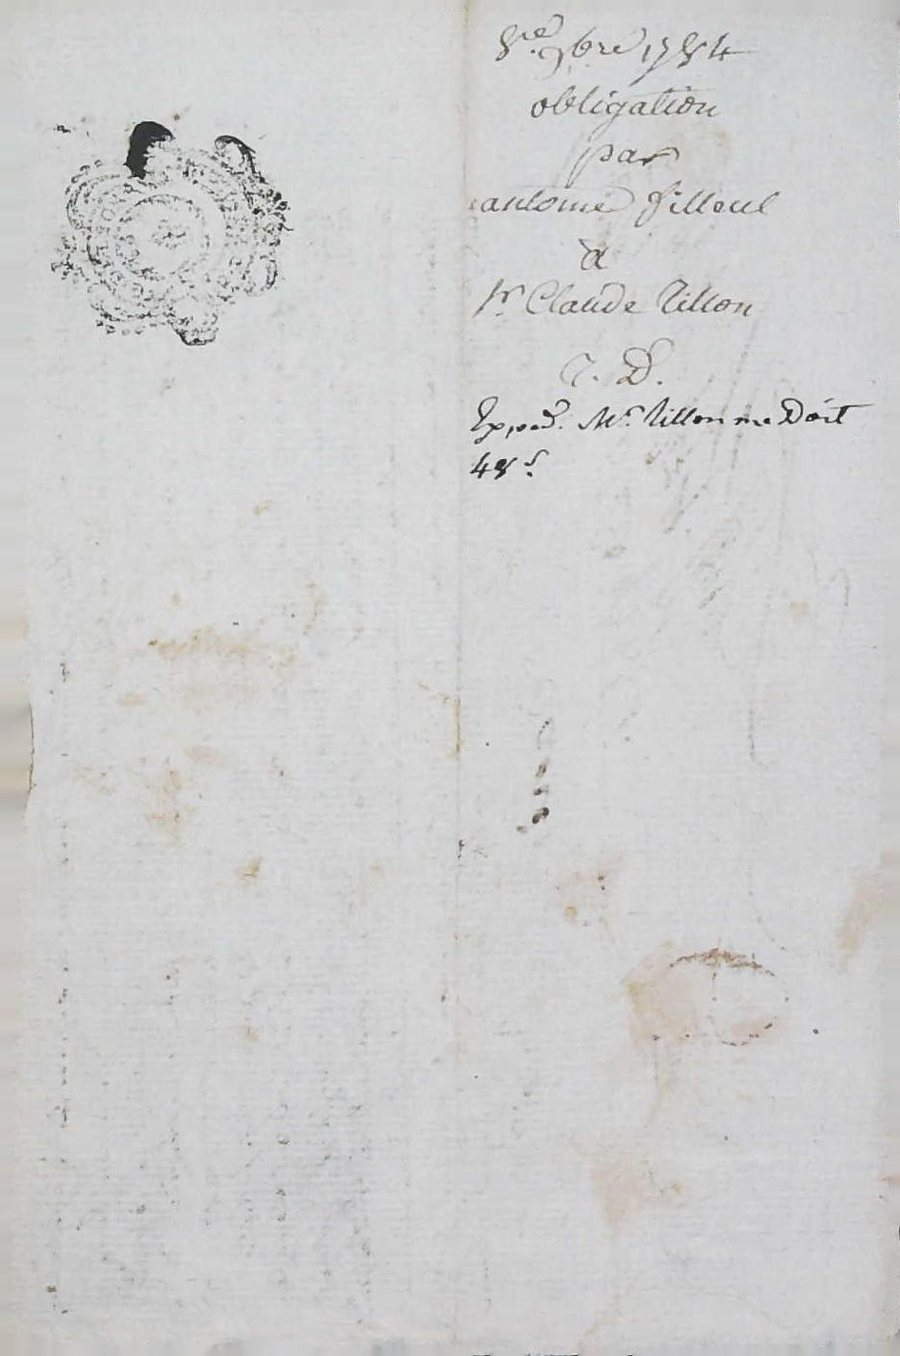 8.re 9bre 1784
obligation
par
antoine filleul
à
Sr Claude Tillon
J. D.
Exped. Mr. Tillon me Doit
48 s.